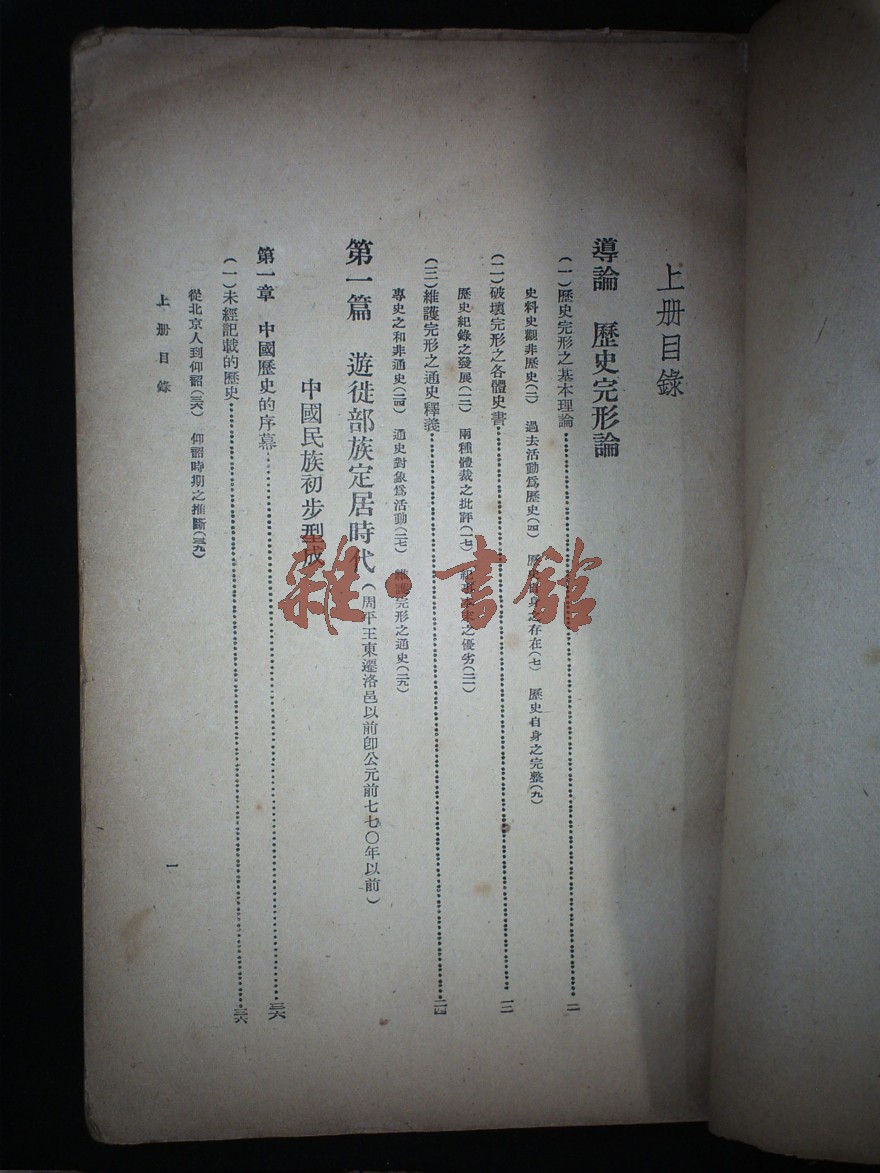 上册目錄
導論 歷史完形論
(一)歷史完形之基本理論……二
史料史觀非歷史(二) 過去活動爲歷史(四) 歷史自身之存在(七) 歷史自身之完整(九)
(二)破壞完形之各體史書……一二
歷史紀錄之發展(一二) 兩種體裁之批評(一七) 紀事本末之優劣(二一)
(三)維護完形之通史釋義……二四
專史之和非通史(二四) 通史對象爲活動(二七) 維護完形之通史(二九)
第一篇 遊徙部族定居時代(周平王東遷洛邑以前卽公元前七七〇年以前)
中國民族初步型成
第一章 中國歷史的序幕……三六
(一)未經記載的歷史……三六
從北京人到仰韶(三六) 仰韶時期之推斷(三九)
上册目錄
一
雜·書館